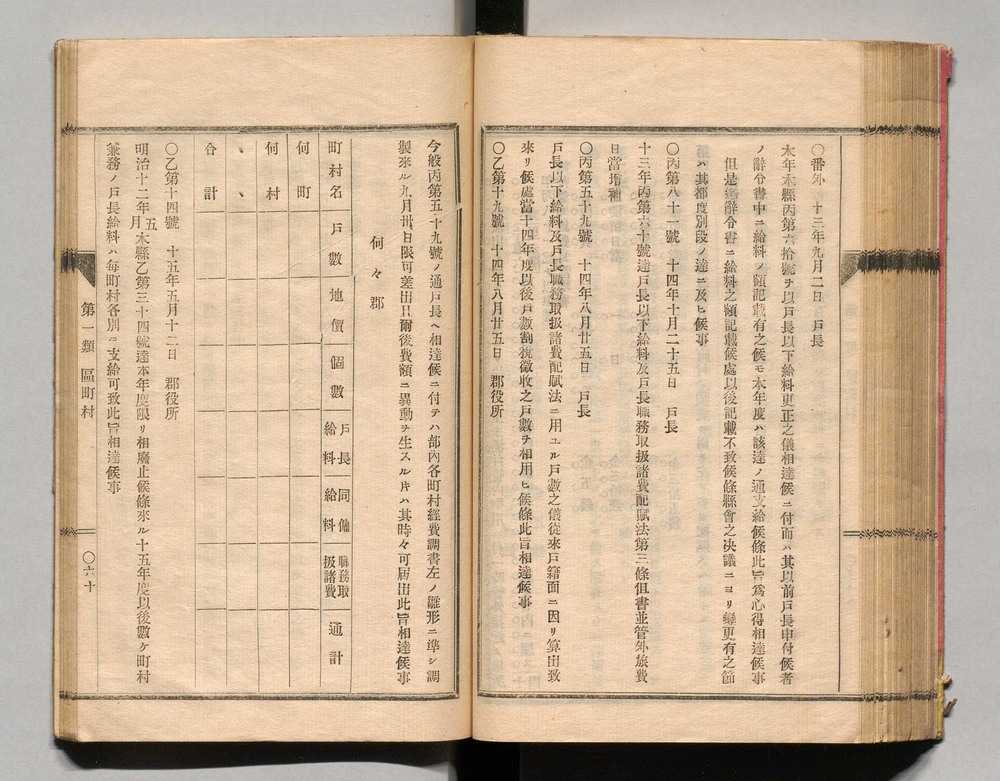 〇番外 十三年九月二日 戸長
本年本縣丙第六拾號ヲ以戸長以下給料更正之儀相達候ニ付而ハ其以前戸長申付候者
ノ辭令書中ニ給料ノ額記載有之候モ本年度ハ該達ノ通支給候條此旨爲心得相達候事
但是迄辭令書ニ給料之額記載候處以後記載不致候條縣會之决議ニヨリ變更有之節
ハ其都度別段ノ達ニ及ヒ候事
〇丙第八十一號 十四年十月二十五日 戸長
十三年丙第六十號達戸長以下給料及戸長職務取扱諸費配賦法第三條但書並管外旅費
日當増補
〇丙第五十九號 十四年八月廿五日 戸長
戸長以下給料及戸長職務取扱諸費配賦法ニ用ユル戸數之儀從來戸籍面ニ因リ算出致
來リ候處當十四年度以後戸數割税徴收之戸數ヲ相用ヒ候條此旨相達候事
〇乙第十九號 十四年八月廿五日 郡役所
今般丙第五十九號ノ通戸長ヘ相達候ニ付テハ部内各町村經費調書左ノ雛形ニ準シ調
製來ル九月卅日限可差出且爾後費額ニ異動ヲ生スル片ハ其時々可届出此旨相達候事
何々郡
町村名 戸數 地價 個數 戸長給料 同傭給料 職務取扱諸費 通計
何町
何村
丶丶
合計
〇乙第十四號 十五年五月十二日 郡役所
明治十二年五月本縣乙第三十四號達本年度限リ相廢止候條來ル十五年度以後數ケ町村
兼務ノ戸長給料ハ毎町村各別ニ支給可致此旨相達候事
第一類 區町村
〇六十